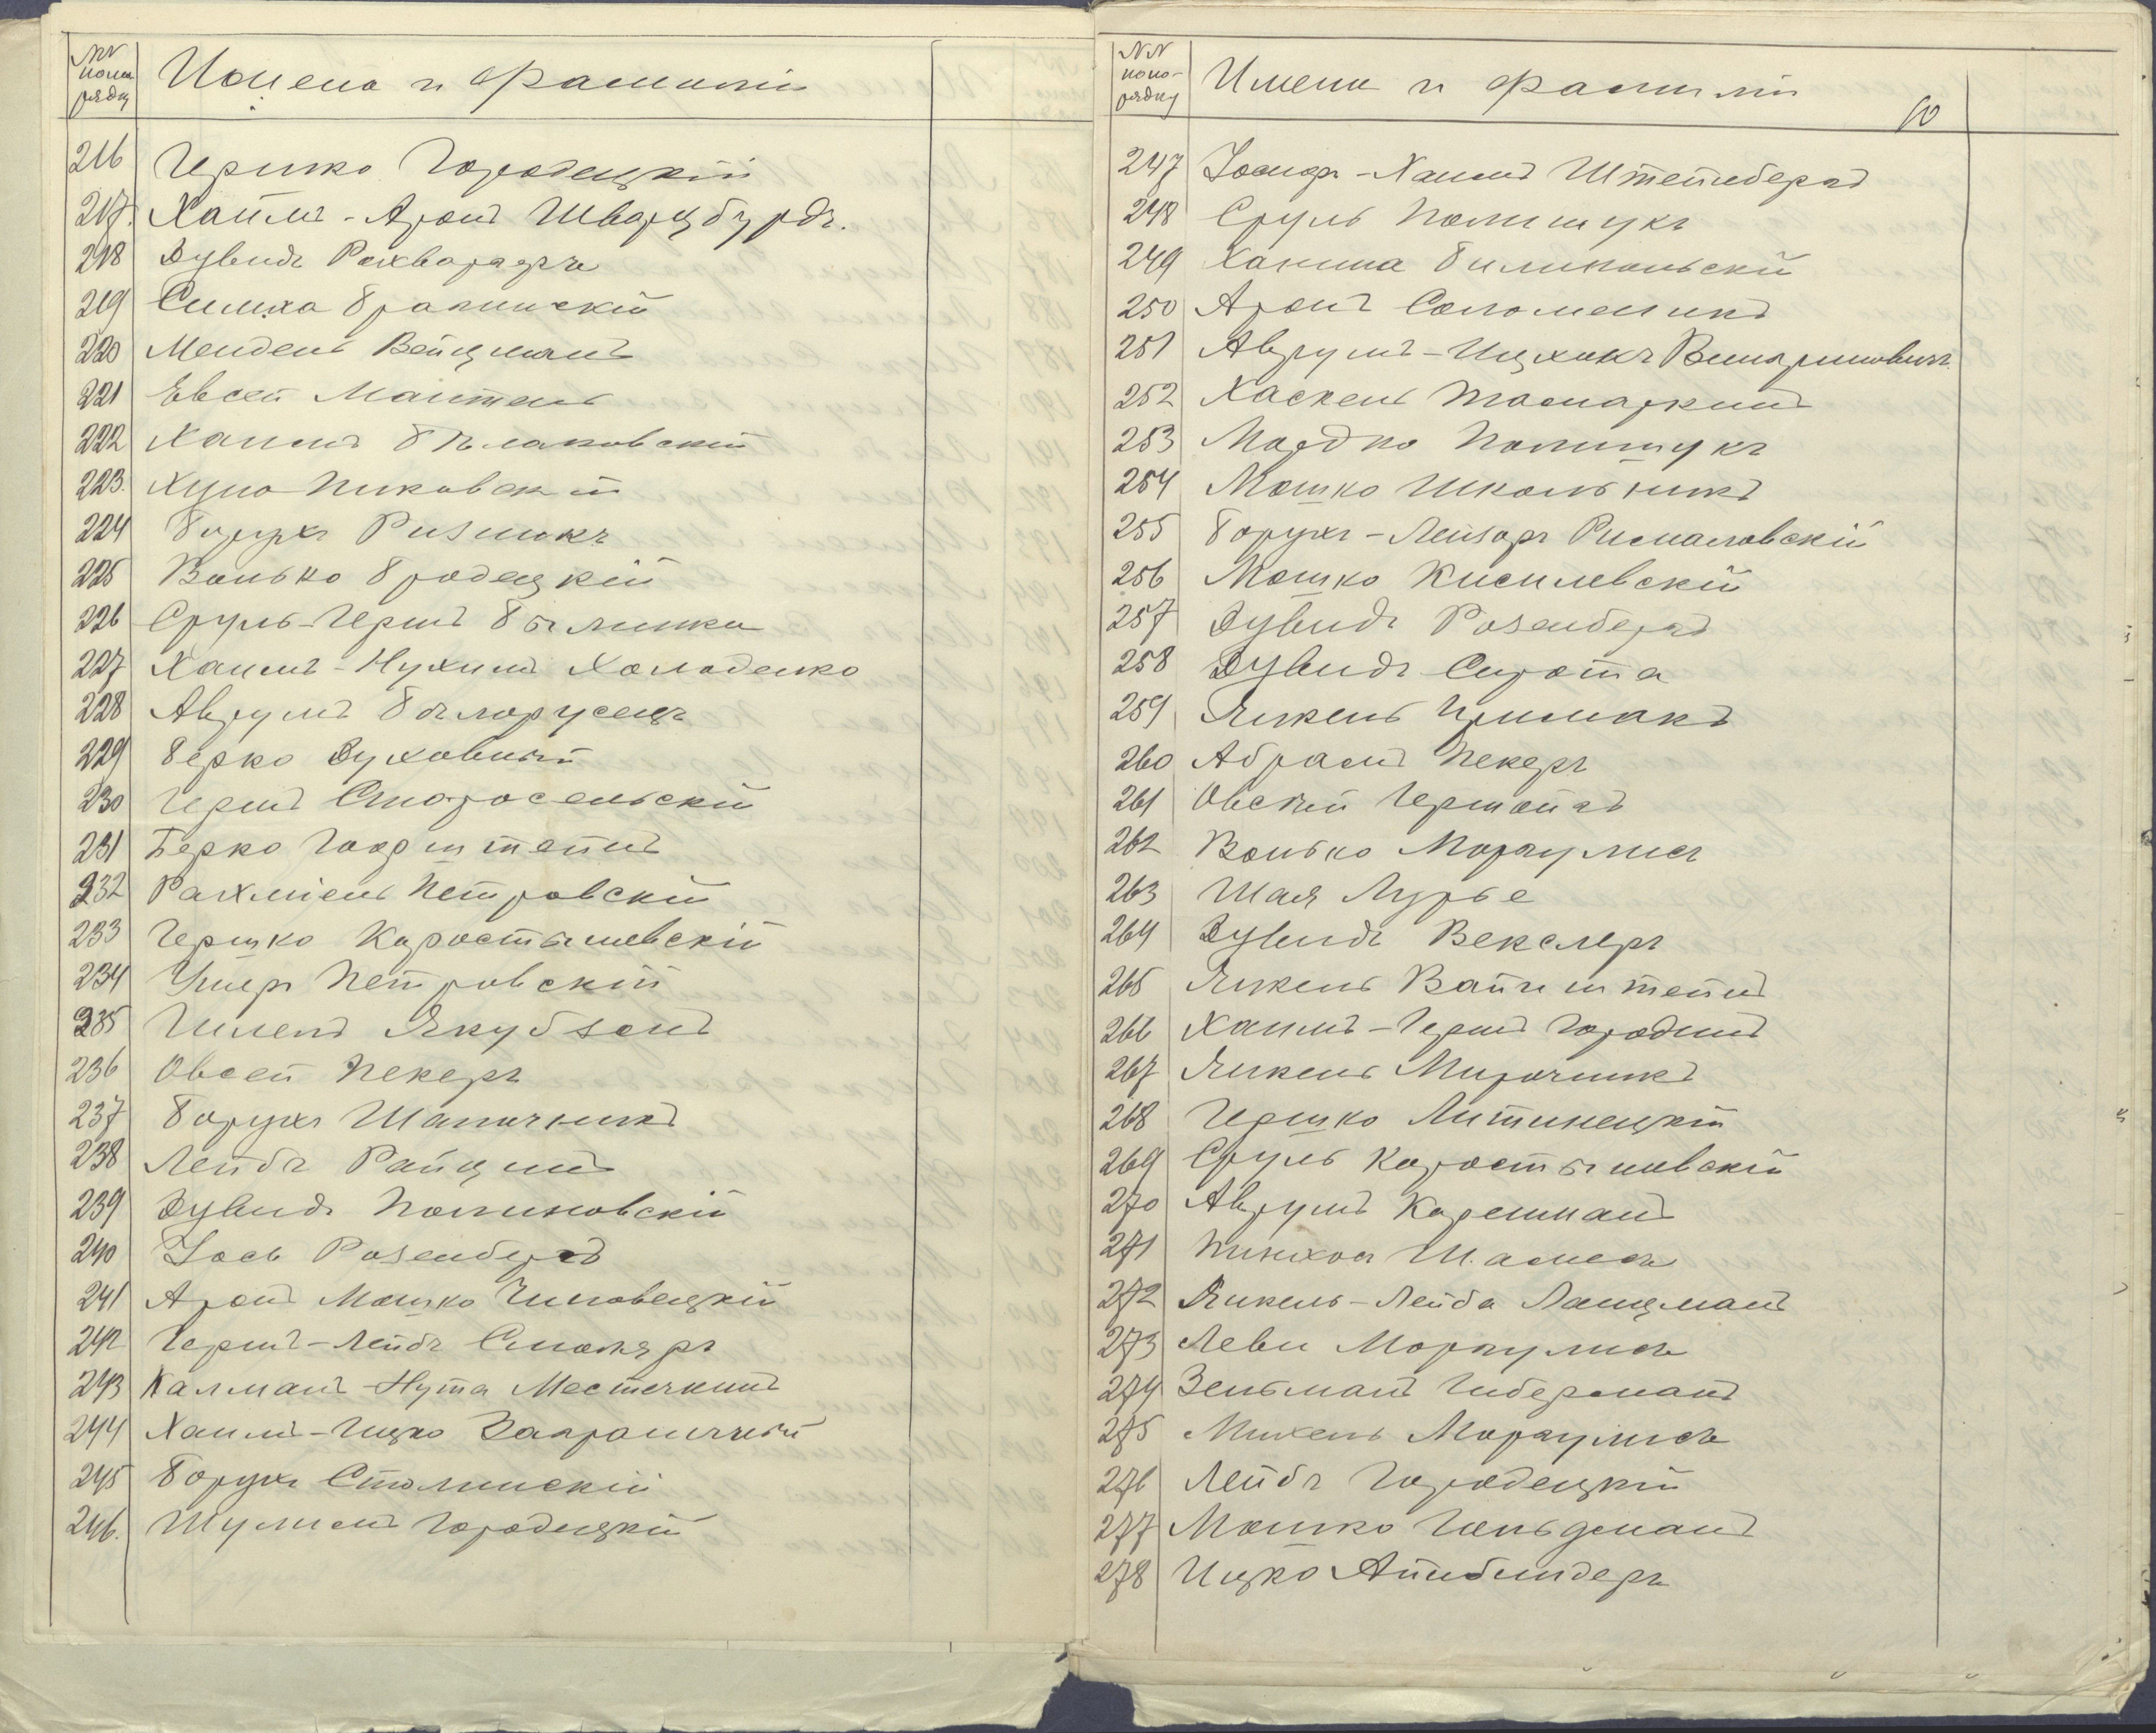 NN
попо-
рядку
Имена и фамиліи
216 Гершко Городецкій
217. Хаимъ-Аронъ Шварцбурдъ.
218 Дувидъ Рохваргеръ
219 Симха Бралинскій
220 Мендель Вейцманъ
221 Евсей Мантель
222 Хаимъ Бѣлаковскій
223. Хуно Пиковскій
224 Борухъ Ризникъ
225 Волько Бродецкій
226 Сруль-Гершъ Былинка
227 Хаимъ-Нухимъ Холоденко
228 Аврумъ Бѣлорусецъ
229 Берко Духовный
230 Гершъ Старосельскій
231 Берко Гоорштейнъ
232 Рахміель Петровскій
233 Гершко Коростышевскій
234 Ушеръ Петровскій
235 Шлема Якубзонъ
236 Овсей Пекеръ
237 Борухъ Шапочникъ
238 Лейбъ Райцинъ
239 Дувидъ Полиновскій
240 Іось Розенбергъ
241 Аронъ Мошко Чиповецкій
242 Гершъ-Лейбъ Столяръ
243 Калманъ-Нута Местечкинъ
244 Хаимъ-Ицко
245 Борухъ Столинскій
246. Шулимъ Городецкій
NN
попо-
рядку
Имена и фамиліи
60
247 Іосифъ-Хаимъ Штейнбергъ
248 Сруль Полищукъ
249 Ханина Билипольскій
250 Аронъ Соломенникъ
251 Аврумъ-Ицхокъ
252 Хаскель
253 Мордко Полищукъ
254 Мошко Школьникъ
255 Борухъ-Лейзоръ Рималовскій
256 Мошко Кисилевскій
257 Дувидъ Розенбергъ
258 Дувидъ Сирота
259 Янкель Примакъ
260 Абрамъ Пекеръ
261 Овсѣй Герштейнъ
262 Волько Моргулисъ
263 Шая Лурье
264 Дувидъ Векслеръ
265 Янкель Вайнштейнъ
266 Хаимъ-Гершъ Городинъ
267 Янкель Мирочникъ
268 Гершко Литинецкій
269 Сруль Коростышевскій
270 Аврумъ Корешманъ
271 Пинхосъ Шамесъ
272 Янкель-Лейба Лацманъ
273 Леви Моргулисъ
274 Зельманъ Гиберманъ
275 Михель Моргулисъ
276 Лейбъ Городецкій
277 Мошко Гольдманъ
278 Ицко Айнбиндеръ